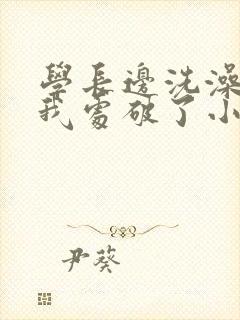 學長邊洗澡
我處破了小
尹葵